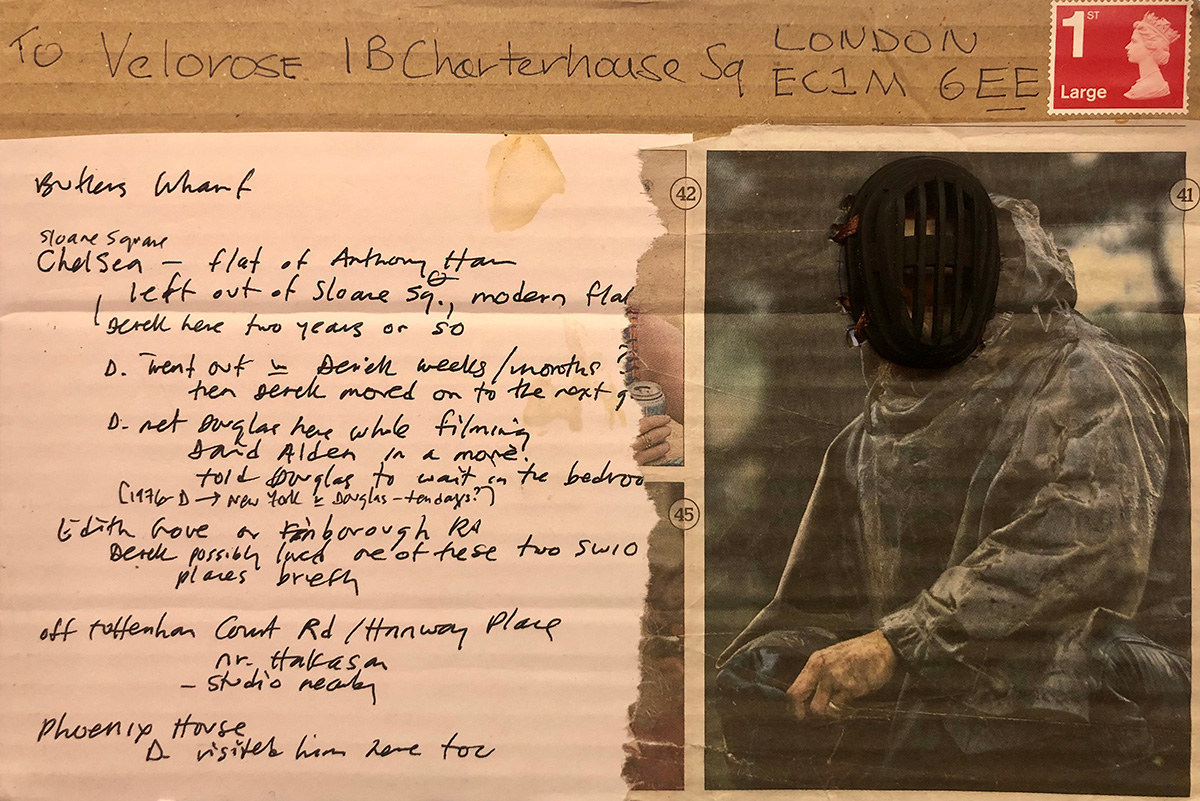 To Velorose 1B Charterhouse Sq LONDON
EC1M 6EE
1ST
Large
Butlers Wharf
Sloane Square
Chelsea – flat of Anthony
left out of Sloane Sq., modern flat
Derek here two years or so
D. went out Derek weeks/months
then Derek moved on to the next
D. met Douglas here while filming
David Alden in a movie.
told Douglas to wait in the bedroo
(1976 D → New York Douglas – ten days?)
Edith Grove or Finborough Rd
Derek possibly lived one of these two SW10
places briefly
off Tottenham Court Rd / Hanway Place
nr. Hakasan
– studio nearby
Phoenix House
D. visited him here too
42
41
45